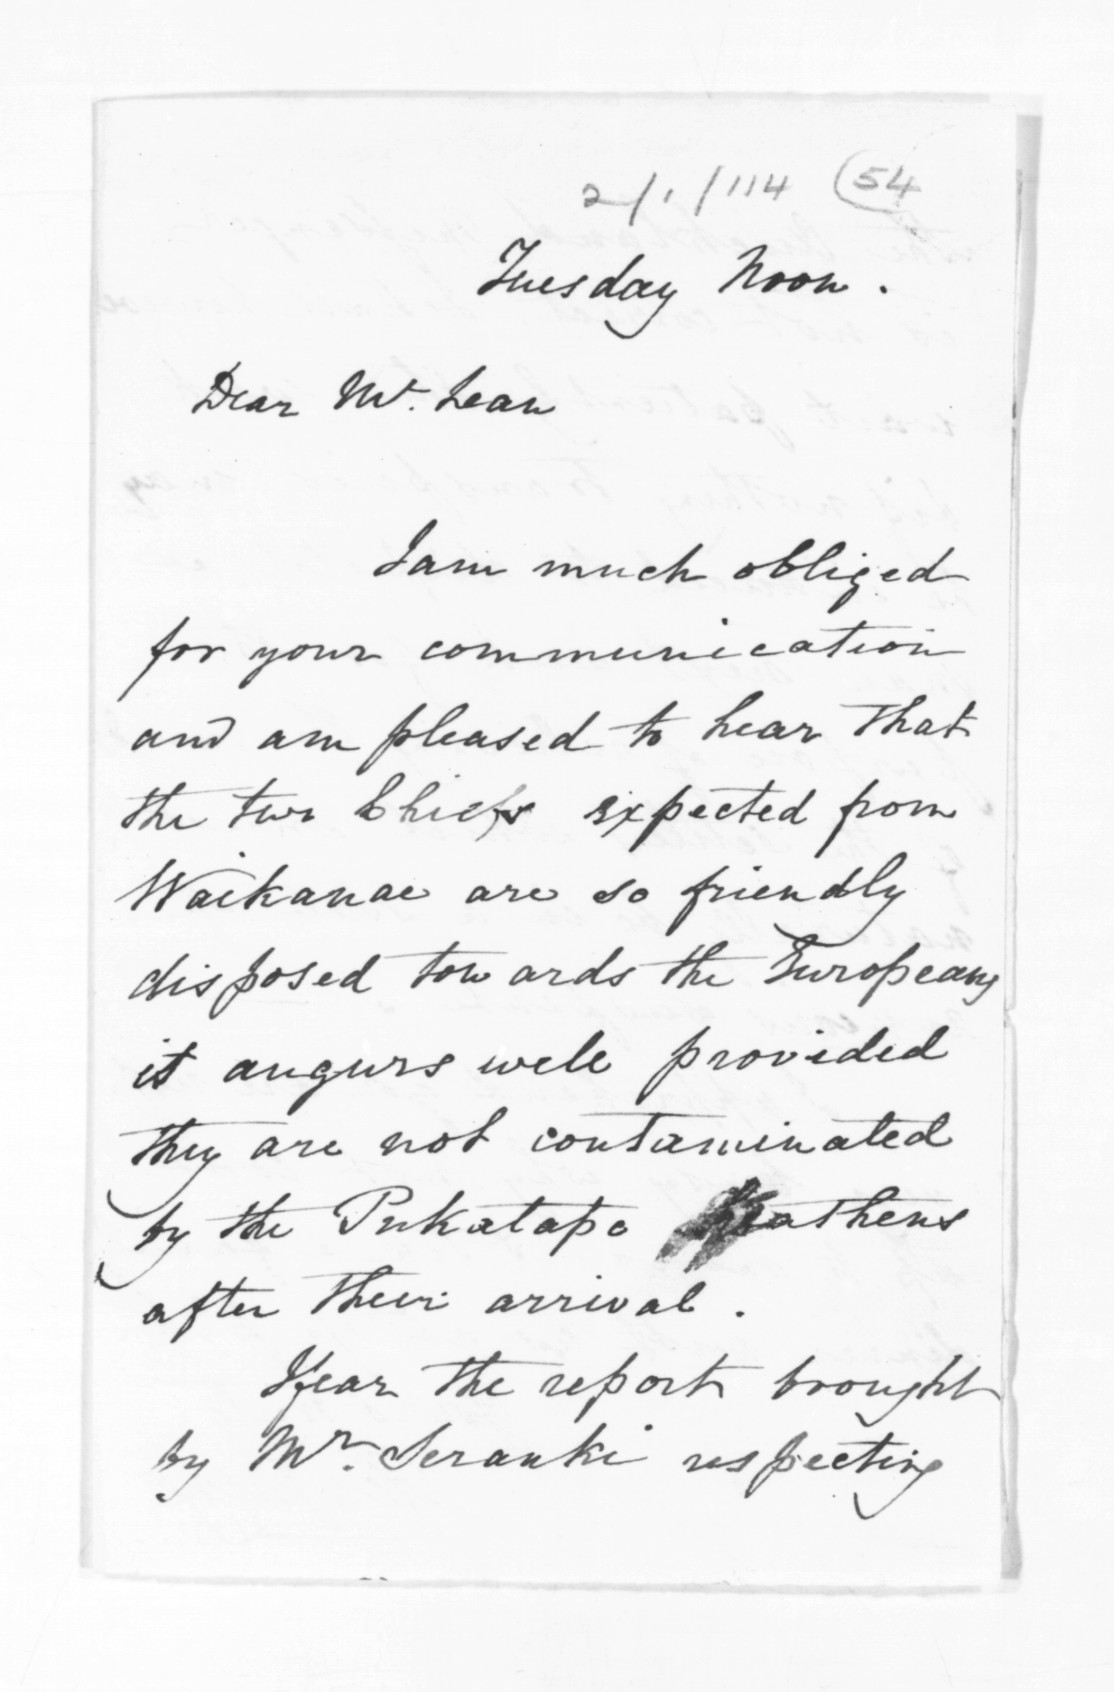 2/1/114 (54
Tuesday Noon.
Dear Mr. Lean
I am much obliged
for your communication
and am pleased to hear that
the two Chiefs expected from
Waikanae are so friendly
disposed towards the Europeans
it augurs well provided
they are not contaminated
by the Pukatapo
after their arrival.
I fear the report brought
by Mr. respecting